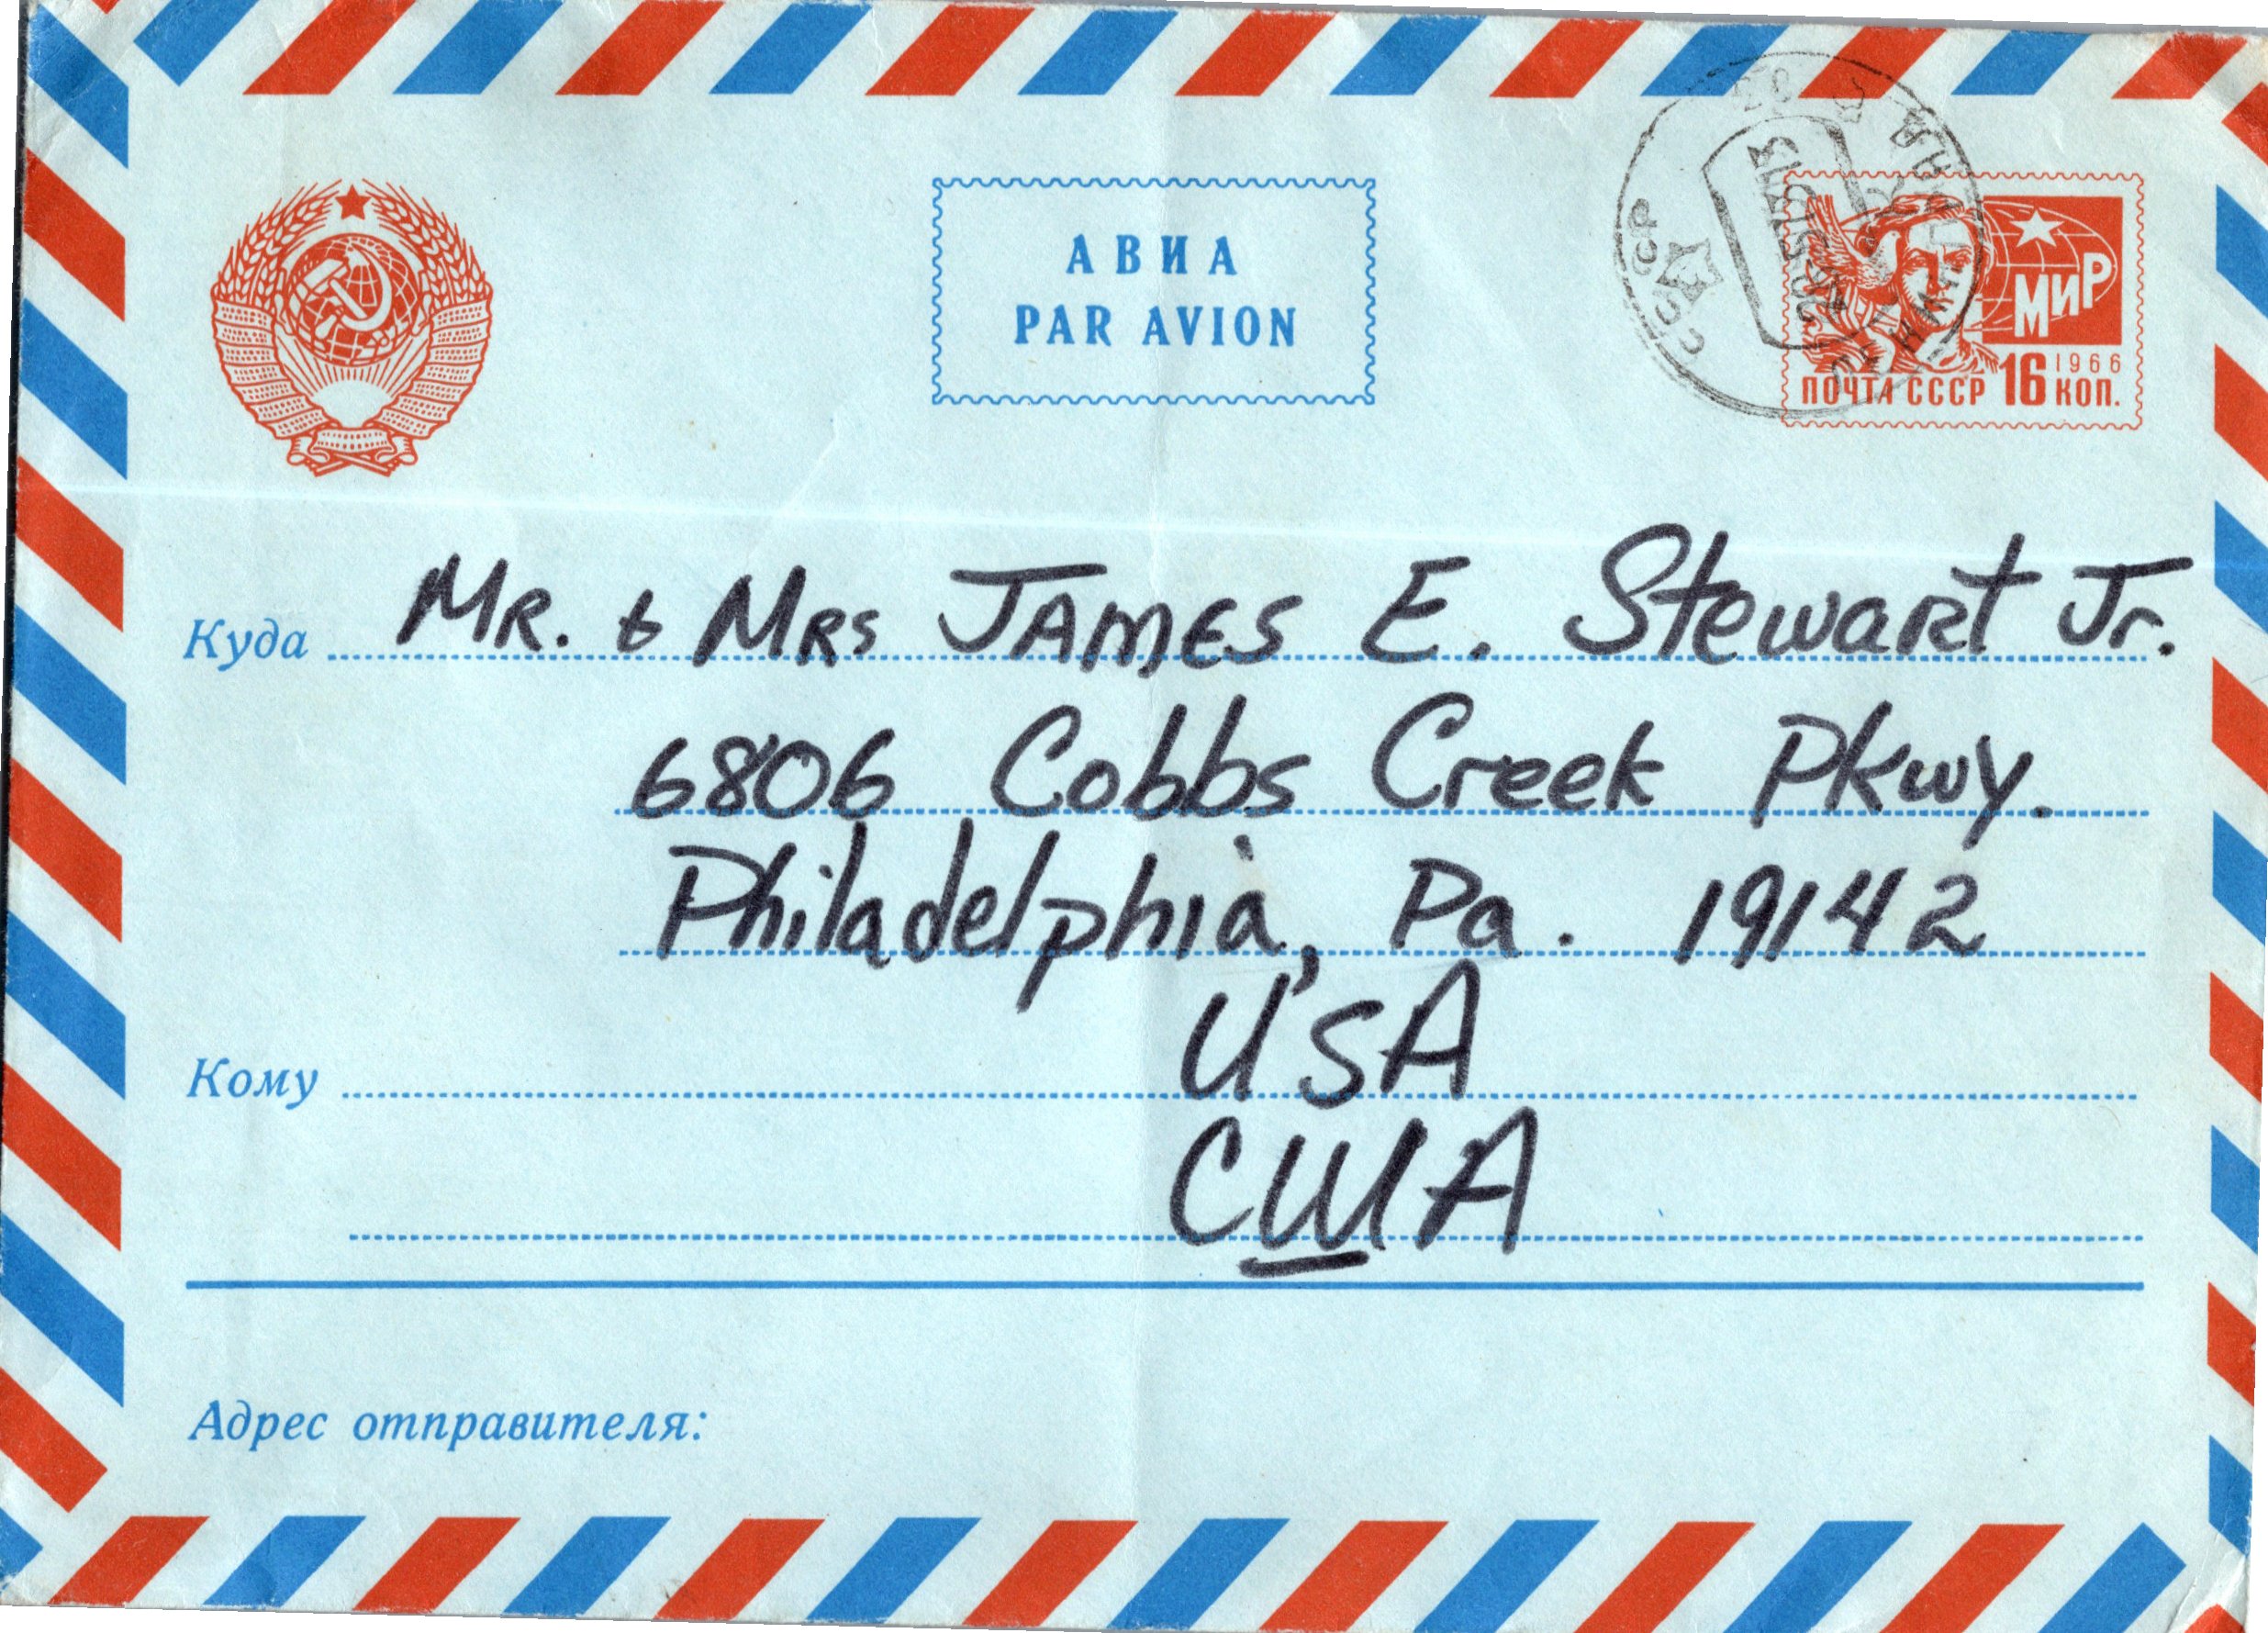 АВИА
PAR AVION
СССР
МИР
1966
ПОЧТА СССР 16 КОП.
Куда MR. & MRS JAMES E. Stewart Jr.
6806 Cobbs Creek Pkwy.
Philadelphia, Pa. 19142
Кому USA
США
Адрес отправителя: